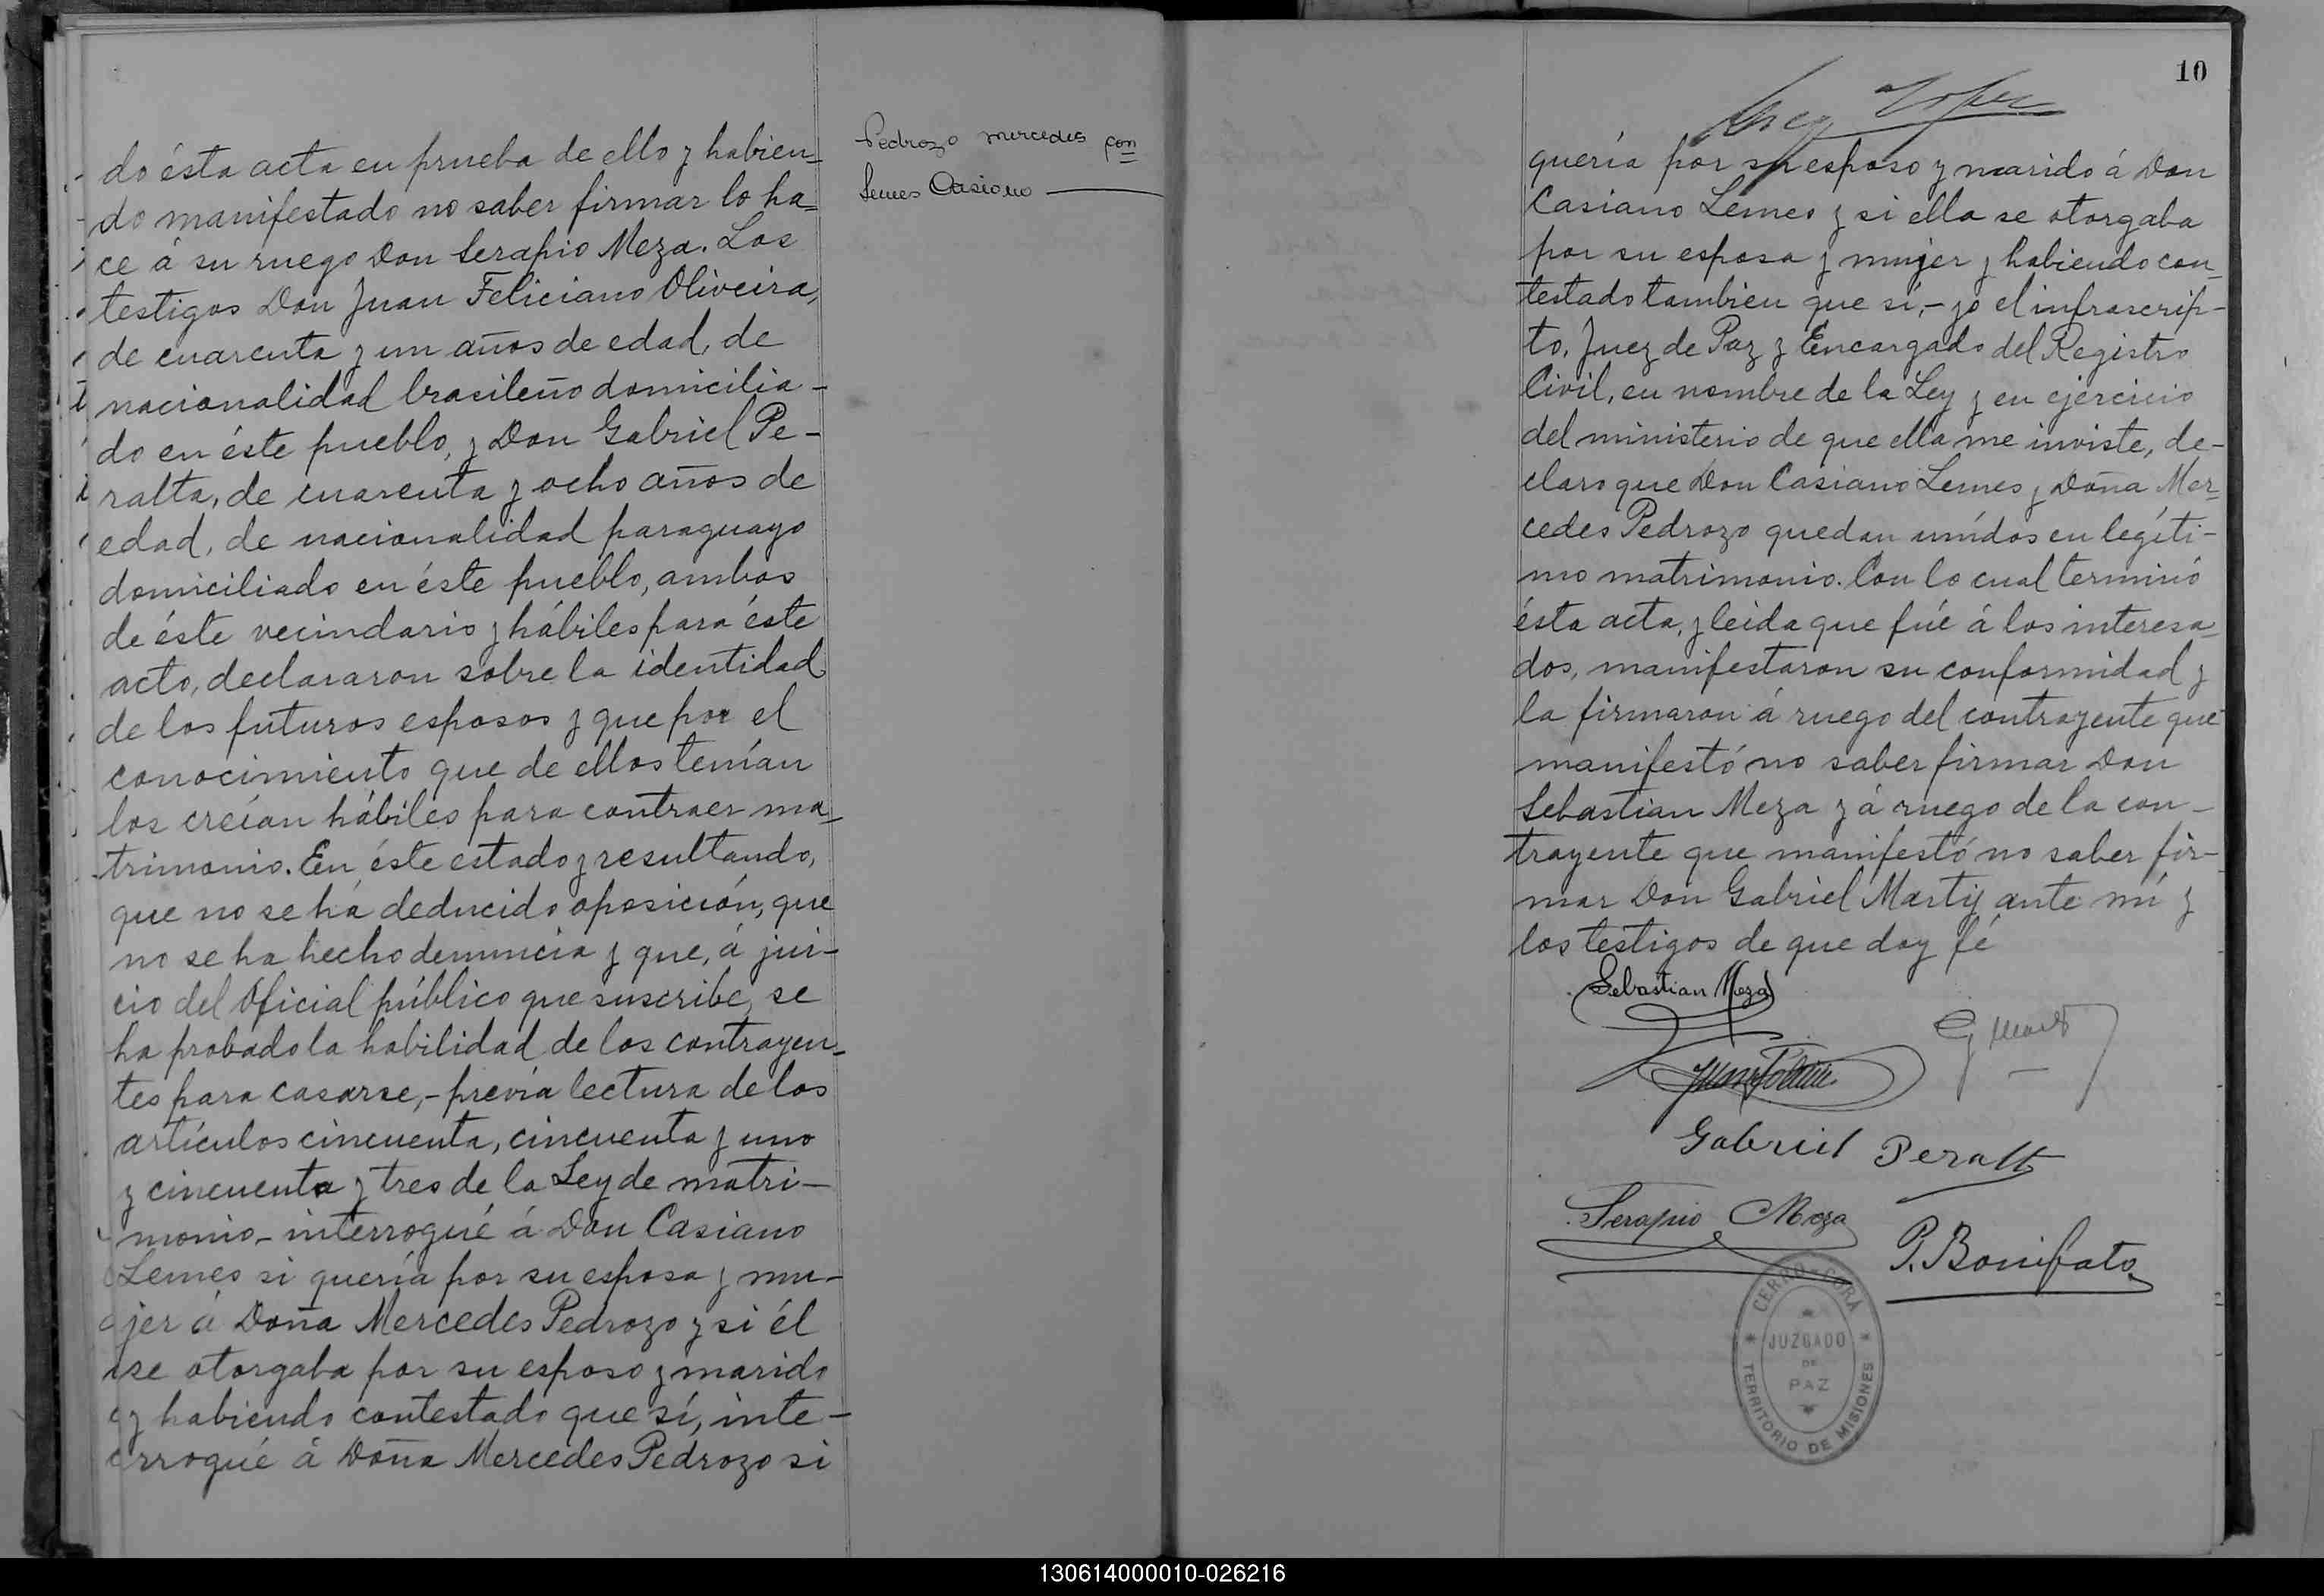 do ésta acta en prueba de ello y habien-
do manifestado no saber firmar lo ha-
ce á su ruego Don Serapio Meza. Los
testigos Don Juan Feliciano Oliveira,
de cuarenta y un años de edad, de
nacionalidad brasileño domicilia-
do en éste pueblo, y Don Gabriel Pe-
ralta, de cuarenta y ocho años de
edad, de nacionalidad paraguayo
domiciliado en éste pueblo, ambos
de éste vecindario y hábiles para éste
acto, declararon sobre la identidad
de los futuros esposos y que por el
conocimiento que de ellos tenían
los creían hábiles para contraer ma-
trimonio. En éste estado y resultando,
que no se há deducido oposición, que
no se ha hecho denuncia y que, á jui-
cio del Oficial público que suscribe, se
ha probado la habilidad de los contrayen-
tes para casarse,- previa lectura de los
artículos cincuenta, cincuenta y uno
y cincuenta y tres de la Ley de matri-
monio- interrogué á Don Casiano
Lemes si quería por su esposa y mu-
jer á Doña Mercedes Pedrozo y si él
se otorgaba por su esposo y marido
y habiendo contestado que sí, inte-
rrogué á Doña Mercedes Pedrozo si
Pedrozo Mercedes con
Lemes Casiano
10
quería por su esposo y marido á Don
Casiano Lemes y si ella se otorgaba
por su esposa y mujer y habiendo con-
testado tambien que sí,- yo el infrascrip-
to, Juez de Paz y Encargado del Registro
Civil, en nombre de la Ley y en ejercicio
del ministerio de que ella me inviste, de-
claro que Don Casiano Lemes y Doña Mer-
cedes Pedrozo quedan unídos en legíti-
mo matrimonio. Con lo cual terminó
ésta acta, y leida que fué á los interesa-
dos, manifestaron su conformidad y
la firmaron á ruego del contrayente que
manifestó no saber firmar Don
Sebastian Meza y á ruego de la con-
trayente que manifestó no saber fir-
mar Don Gabriel Martij ante mí y
los testigos de que doy fé
Sebastian Meza
Gabriel Peralta
Serapio Meza
P. Bonifato
CERRO-CORÁ
JUZGADO
DE
PAZ
TERRITORIO DE MISIONES
130614000010-026216